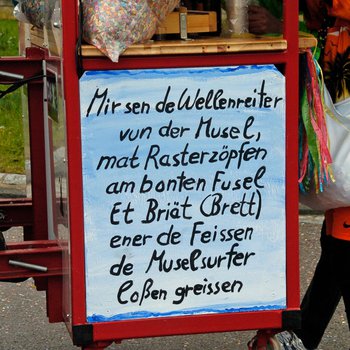 Mir sen de Wellenreiter
vun der Musel,
mat Rasterzöpfen
am bonten Fusel
Et Briät (Brett)
ener de Feissen
de Muselsurfer
loßen greissen